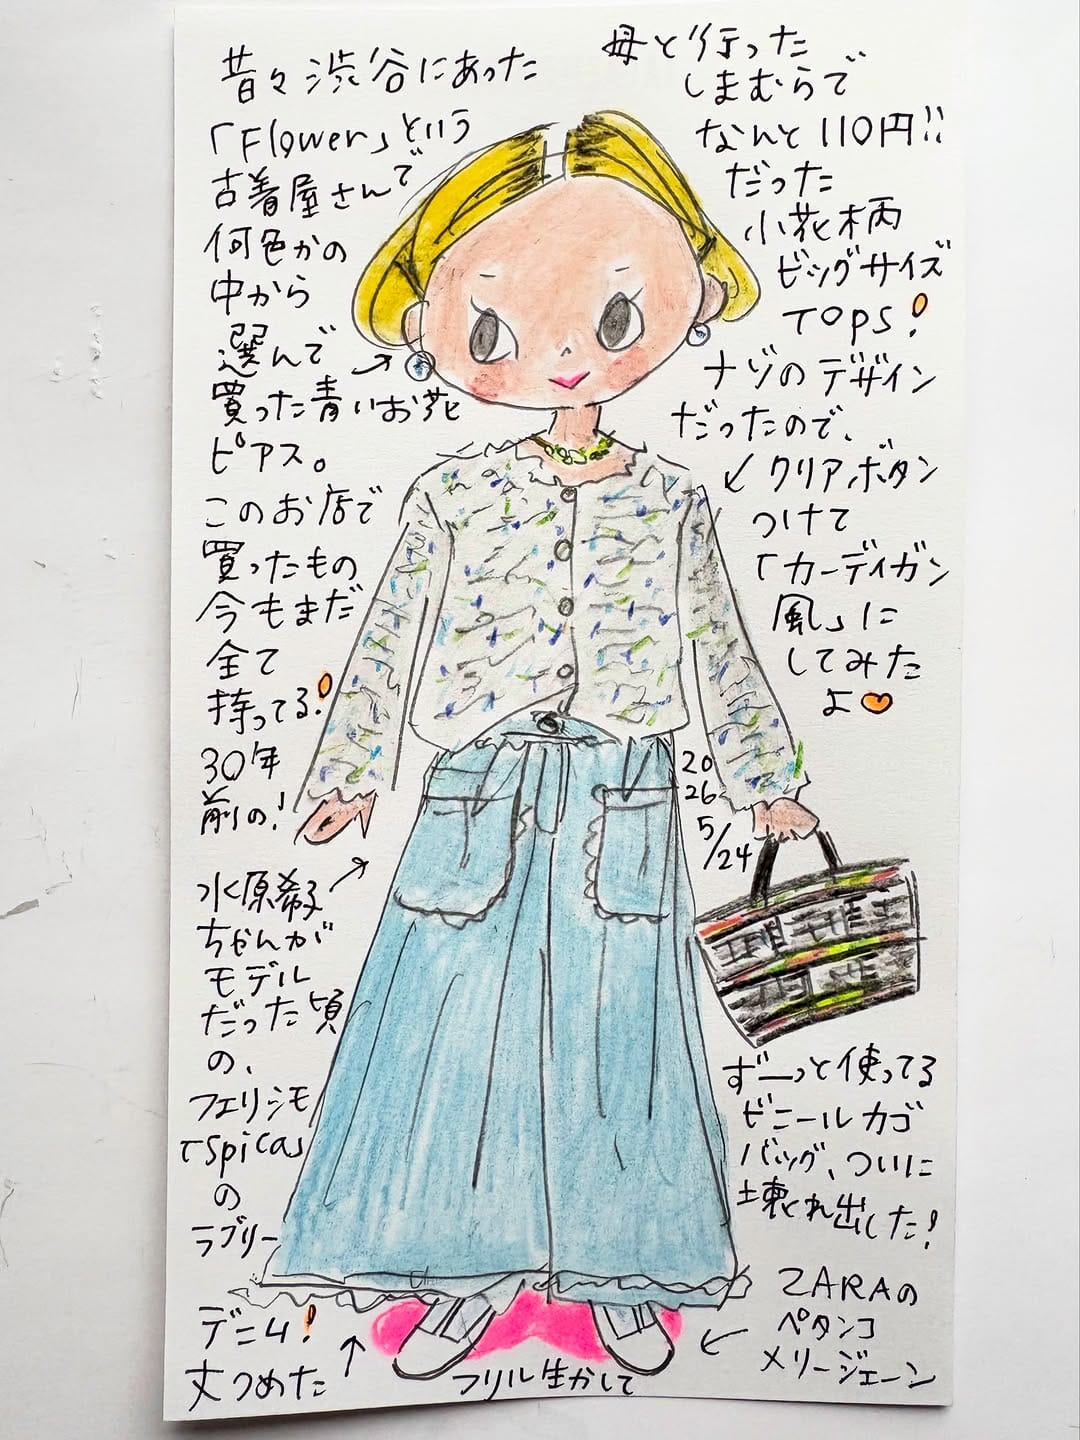 昔々渋谷にあった
「Flower」という
古着屋さんで
何色かの
中から
選んで
買った青いお花
ピアス。
このお店で
買ったもの
今もまだ
全て
持ってる!
30年
前の!
水原希子
ちゃんが
モデル
だった頃
の、
フェリシモ
「Spica」
の
ラブリー
デニム!
丈つめた
フリル生かして
母と行った
しまむらで
なんと110円!!
だった
小花柄
ビッグサイズ
TOPS!
ナゾのデザイン
だったので、
クリアボタン
つけて
「カーディガン
風」に
してみた
よ
20
26
5/24
ずーっと使ってる
ビニールカゴ
バッグ、ついに
壊れ出した!
ZARAの
ペタンコ
メリージェーン